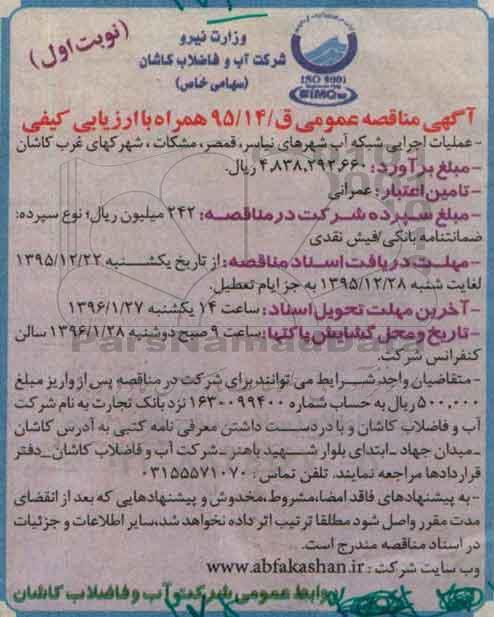 (نوبت اول)
وزارت نیرو
شرکت آب و فاضلاب کاشان
(سهامی خاص)
ISO 9001
آگهی مناقصه عمومی ق/۹۵/۱۴ همراه با ارزیابی کیفی
-عملیات اجرایی شبکه آب شهرهای نیاسر، قمصر، مشکات، شهرکهای غرب کاشان
-مبلغ برآورد: ۴،۸۳۸،۲۹۲،۶۶۰ ریال.
-تامین اعتبار: عمرانی
-مبلغ سپرده شرکت در مناقصه: ۲۴۲ میلیون ریال؛ نوع سپرده:
ضمانتنامه بانکی/فیش نقدی
-مهلت دریافت اسناد مناقصه: از تاریخ یکشنبه ۱۳۹۵/۱۲/۲۲
لغایت شنبه ۱۳۹۵/۱۲/۲۸ به جز ایام تعطیل.
-آخرین مهلت تحویل اسناد: ساعت ۱۴ یکشنبه ۱۳۹۶/۱/۲۷
-تاریخ و محل گشایش پاکتها: ساعت ۹ صبح دوشنبه ۱۳۹۶/۱/۲۸ سالن
کنفرانس شرکت.
-متقاضیان واجد شرایط می توانند برای شرکت در مناقصه پس از واریز مبلغ
۵۰۰،۰۰۰ ریال به حساب شماره ۱۶۳۰۰۹۹۴۰۰ نزد بانک تجارت به نام شرکت
آب و فاضلاب کاشان و با در دست داشتن معرفی نامه کتبی به آدرس کاشان
-میدان جهاد-ابتدای بلوار شهید باهنر-شرکت آب و فاضلاب کاشان-دفتر
قراردادها مراجعه نمایند. تلفن تماس: ۰۳۱۵۵۵۷۱۰۷۰
-به پیشنهادهای فاقد امضا، مشروط، مخدوش و پیشنهادهایی که بعد از انقضای
مدت مقرر واصل شود مطلقا ترتیب اثر داده نخواهد شد، سایر اطلاعات و جزئیات
در اسناد مناقصه مندرج است.
وب سایت شرکت: www.abfakashan.ir
روابط عمومی شرکت آب و فاضلاب کاشان
ParsNamadData